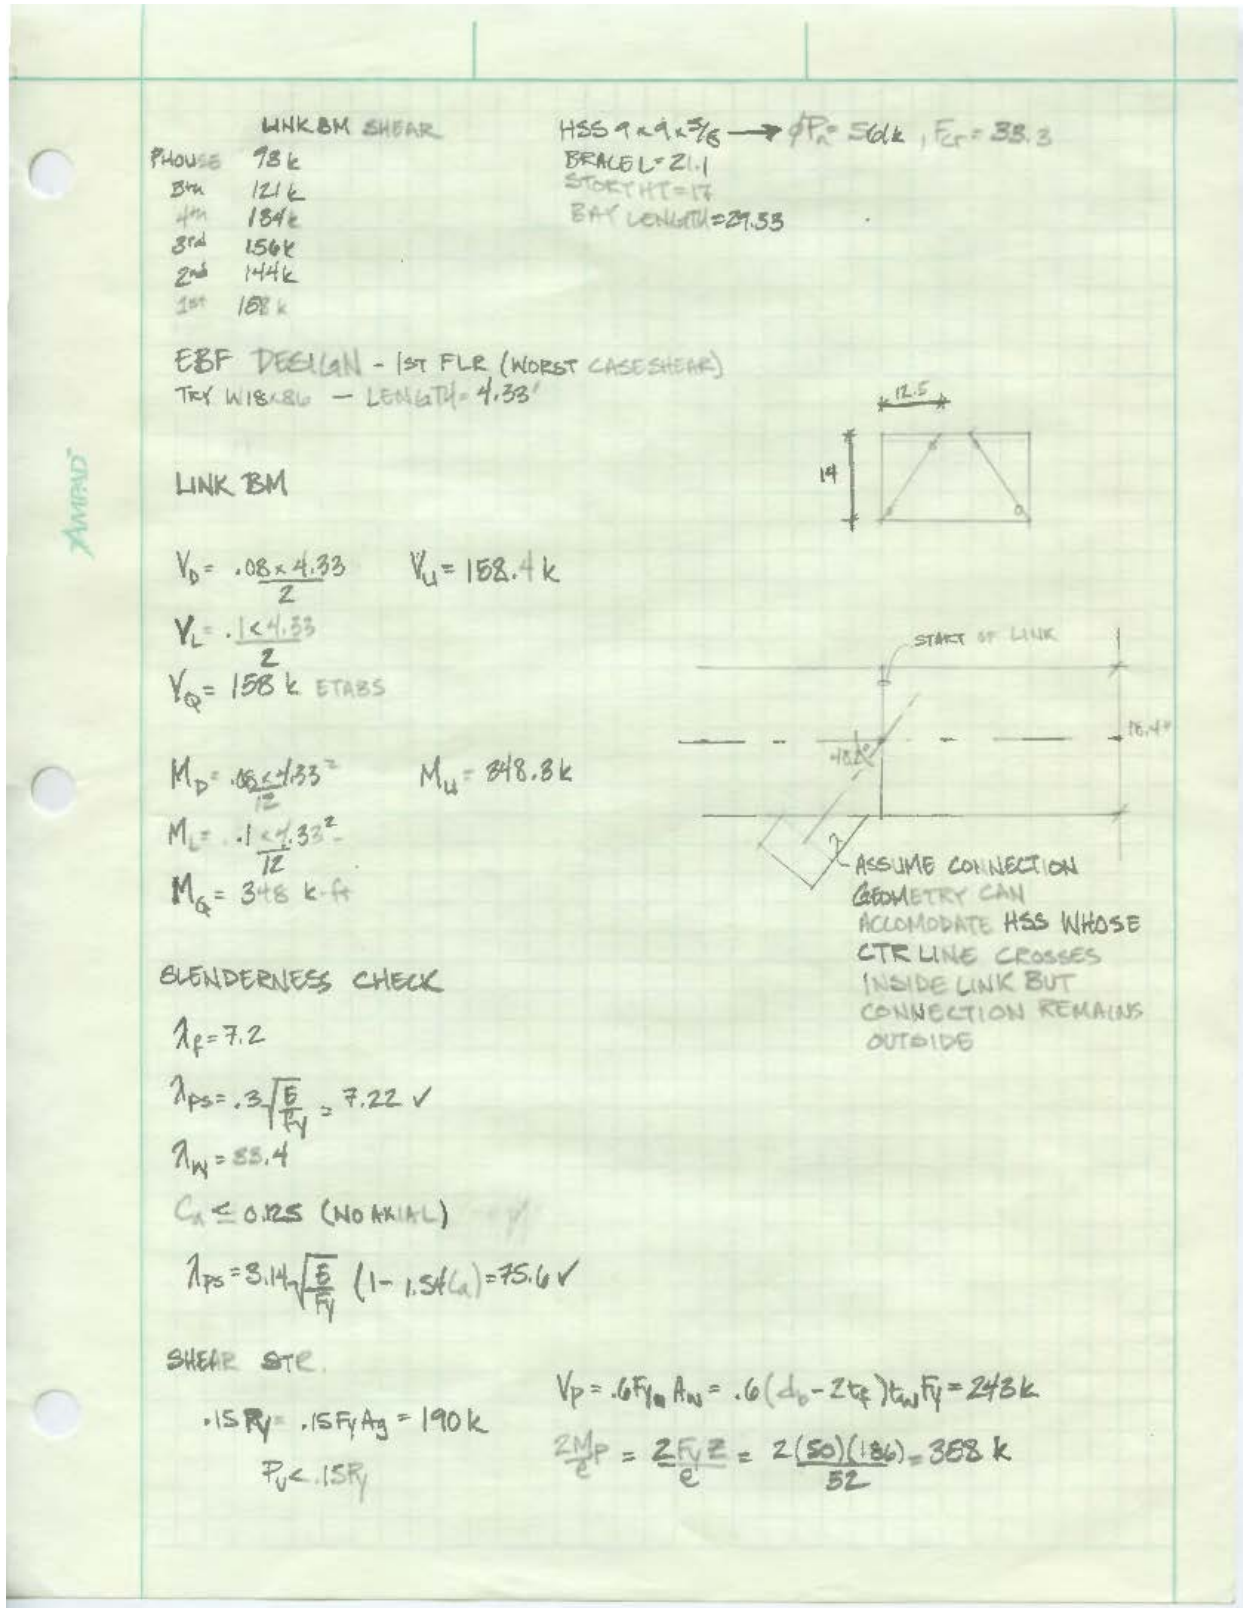 LINK BM SHEAR
PHOUSE 98k
5th 121k
4th 134k
3rd 156k
2nd 144k
1st 158k
HSS 9x9x5/8 → φPn = 561k, Fcr = 33.3
BRACE L = 21.1
STORY HT = 17
BAY LENGTH = 29.33
EBF DESIGN - 1ST FLR (WORST CASE SHEAR)
TRY W18x86 — LENGTH = 4.33'
12.5
14
LINK BM
V_D = .08 x 4.33 / 2    V_U = 158.4 k
V_L = .1 x 4.33 / 2
V_Q = 158 k ETABS
START OF LINK
18.4"
M_D = .08 x 4.33² / 12    M_U = 348.3k
M_L = .1 x 4.33² / 12
M_Q = 348 k-ft
ASSUME CONNECTION
GEOMETRY CAN
ACCOMODATE HSS WHOSE
CTR LINE CROSSES
INSIDE LINK BUT
CONNECTION REMAINS
OUTSIDE
SLENDERNESS CHECK
λf = 7.2
λps = .3 √(E/Fy) = 7.22 ✓
λw = 33.4
Ca ≤ 0.125 (NO AXIAL)
λps = 3.14 √(E/Fy) (1 - 1.54Ca) = 75.6 ✓
SHEAR STR.
.15Py = .15FyAg = 190k
Pu < .15Py
Vp = .6Fy Aw = .6(db - 2tf)twFy = 243k
2Mp/e = 2FyZ/e = 2(50)(186)/52 = 358 k
AMPAD™